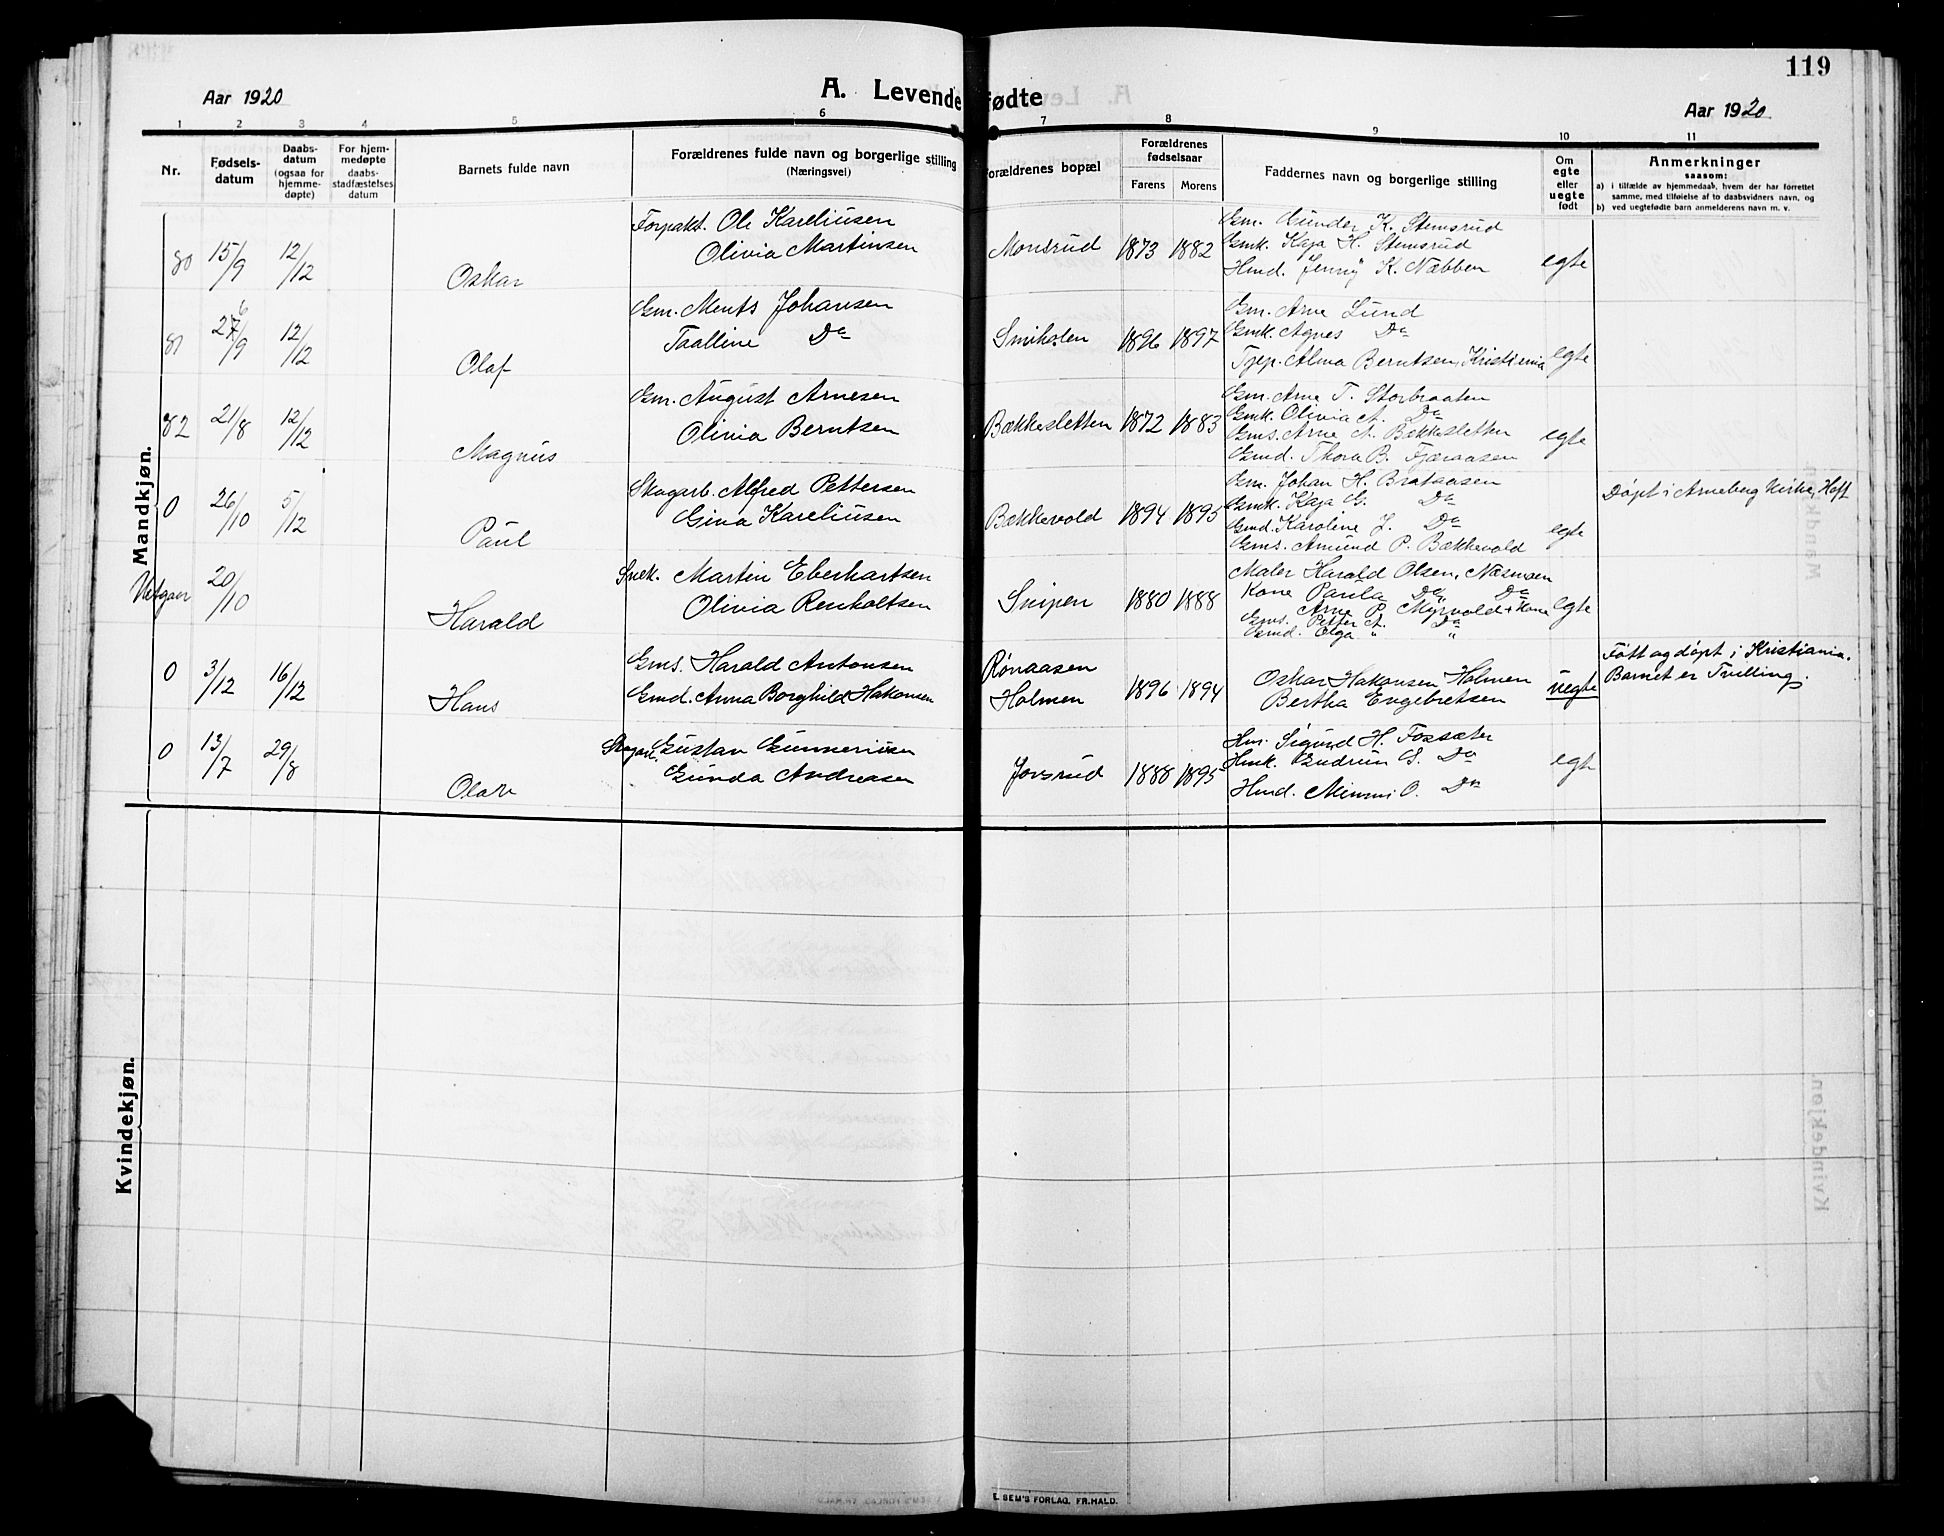 119
Aar 1920
A. Levende fødte
Aar 1920
1 2 3 4 5 6 7 8 9 10 11
Nr.
Fødsels-
datum
Daabs-
datum
(ogsaa for
hjemme-
døpte)
For hjem-
medøpte
daabs-
stadfæstelses
datum
Barnets fulde navn
Forældrenes fulde navn og borgerlige stilling
(Næringsvei)
Forældrenes bopæl
Forældrenes
fødselsaar
Farens Morens
Faddernes navn og borgerlige stilling
Om
egte
eller
uegte
født
Anmerkninger
saasom:
a) i tilfælde av hjemmedaab, hvem der har forrettet
samme, med tilføielse af to daabsvidners navn, og
b) ved uegtefødte barn anmelderens navn m. v.
Mandkjøn.
80 15/9 12/12 Oskar
Forpakt. Ole Kareliusen
Olivia Martinsen
Monsrud 1873 1882
Gm. Gunder K. Stemsrud
Gmk. Kaja H. Stemsrud
Hmd. Jenny K. Næbben
egte
81 27/9 6 12/12 Olaf
Gm. Ments Johansen
Taalline Do
Smiholen 1896 1897
Gm. Arne Lund
Gmk. Agnes Do
Tjep. Alma Berntsen, Kristiania
egte
82 21/8 12/12 Magnus
Gm. August Arnesen
Olivia Berntsen
Bækkesletten 1872 1883
Gm. Arne T. Storbraaten
Gmk. Olivia A. Do
Gms. Arne A. Bækkesletten
Gmd. Thora B. Fjæraasen
egte
0 26/10 5/12 Paul
Skogarb. Alfred Pettersen
Gina Kareliusen
Bækkevold 1894 1895
Gm. Johan H. Brataasen
Gmk. Kaja G. Do
Gmd. Karoline J. Do
Gms. Amund P. Bækkevold
egte
Døpt i Arneberg Kirke, Hoff
Utgaar 20/10 Harald
Snek. Martin Eberhartsen
Olivia Renholtsen
Snipen 1880 1888
Maler Harald Olsen, Næsmoen
Kone Paula Do Do
Arne P. Myrvold + Kone
Gms. Petter A. Do
Gmd. Olga " "
egte
0 3/12 16/12 Hans
Gms. Harald Antonsen
Gmd. Anna Borghild Hakonsen
Rønaasen
Holmen 1896 1894
Oskar Hakonsen Holmen
Bertha Engebretsen
uegte
Født og døpt i Kristiania.
Barnet er Tvilling.
0 13/7 29/8 Olav
Skogarb. Gustav Gunneriusen
Gunda Andreasen
Jovsrud 1888 1895
Hm. Sigurd H. Fossæter
Hmk. Gudrun S. Do
Hmd. Mimmi O. Do
egte
Kvindekjøn.
E. SEM'S FORLAG, FR.HALD.